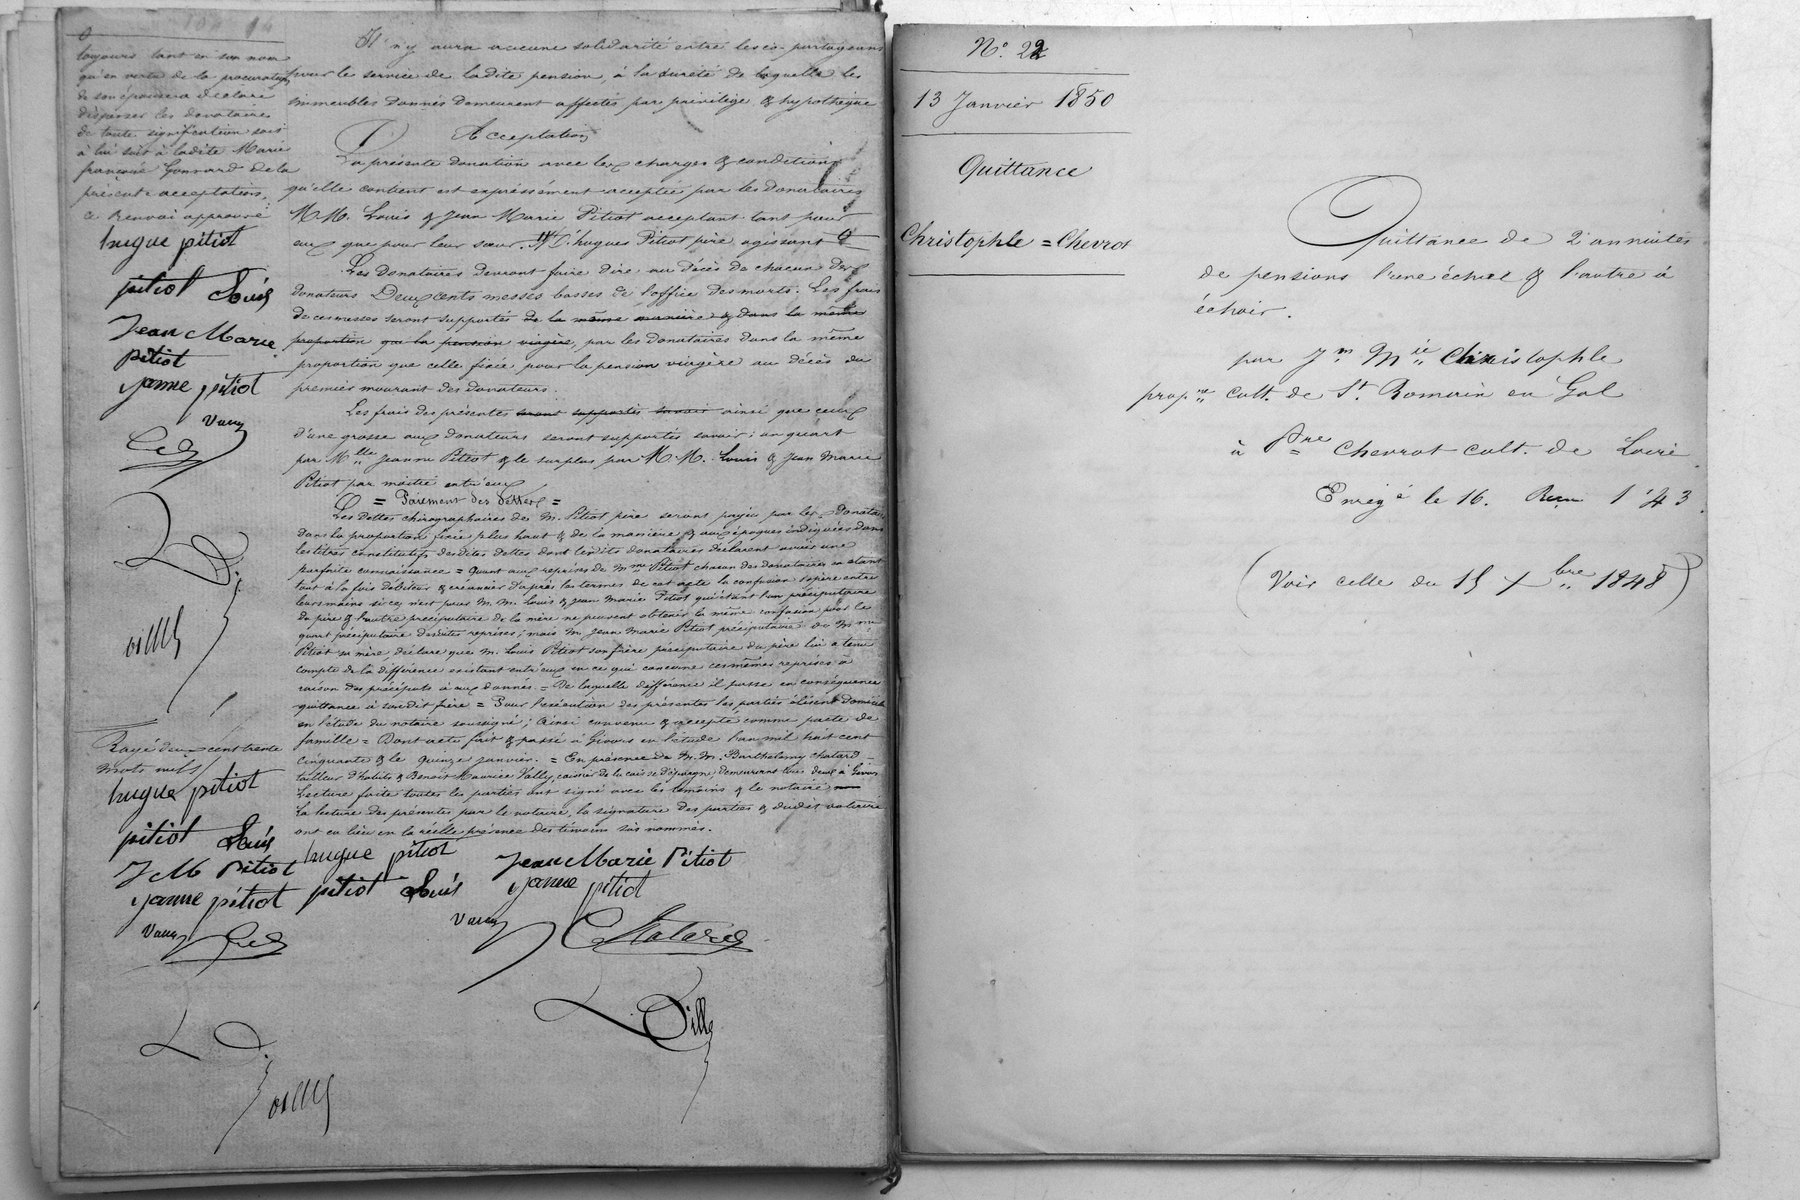 toujours tant en son nom
qu'en vertu de la procuration
de son épouse a déclaré
dispenser les donataires
de toute signification soit
à lui soit à ladite Marie
françoise Gonnard de la
présente acceptation.
ce Renvoi approuvé
hugue pitiot
pitiot Louis
Jean Marie
pitiot
janne pitiot
Il n'y aura aucune solidarité entre les co-partageans
pour le service de ladite pension, à la sureté de laquelle les
immeubles donnés demeurent affectés par privilége & hypothèque
Acceptation
La présente donation avec les charges & conditions
qu'elle contient est expressément acceptée par les donataires
M.M. Louis & Jean Marie Pitiot acceptant tant pour
eux que pour leur sœur. Mr. hugues Pitiot père agissant
Les donataires devront faire dire au décès de chacun des
donateurs Deux cents messes basses de l'office des morts. Les frais
de ces messes seront supportés de la même manière & dans la même
proportion que la pension viagère, par les donataires dans la même
proportion que celle fixée pour la pension viagère au décès du
premier mourant des donateurs.
Les frais des présentes seront supportés savoir ainsi que ceux
d'une grosse aux donateurs seront supportés savoir; un quart
par Mlle Jeanne Pitiot & le surplus par M.M. Louis & Jean Marie
Pitiot par moitié entr'eux
= Paiement des dettes =
Les dettes chirographaires de M. Pitiot père seront payées par les donataires
dans la proportion fixée plus haut & de la manière & aux époques indiquées dans
les titres constitutifs desdites dettes dont lesdits donataires déclarent avoir une
parfaite connaissance = Quant aux reprises de Mme Pitiot chacun des donataires en étant
tout à la fois débiteur & créancier d'après les termes de cet acte la confusion s'opère entre
leurs mains si ce n'est pour M.M. Louis & Jean Marie Pitiot qui étant l'un préciputaire
du père & l'autre préciputaire de la mère ne peuvent obtenir la même confusion pour le
quart préciputaire desdites reprises; mais M. Jean Marie Pitiot préciputaire de Mme
Pitiot sa mère, déclare que M. Louis Pitiot son frère préciputaire du père lui a tenu
compte de la différence existant entr'eux en ce qui concerne ces mêmes reprises à
raison des préciputs à eux donnés = De laquelle différence il passe en conséquence
quittance à sondit frère = Pour l'exécution des présentes les parties élisent domicile
en l'étude du notaire soussigné; Ainsi convenu & accepté comme pacte de
famille = Dont acte fait & passé à Givors en l'étude l'an mil huit cent
cinquante & le quinze janvier. = En présence de M.M. Barthélemy Chatard
tailleur d'habits & Benoit Maurice Vally, caissier de la caisse d'épargne, demeurant tous deux à Givors
Lecture faite toutes les parties ont signé avec les témoins & le notaire
La lecture des présentes par le notaire, la signature des parties & dudit notaire
ont eu lieu en la réelle présence des témoins sus nommés.
Rayé deux cent trente
mots nuls
hugue pitiot
pitiot Louis
J M Pitiot
janne pitiot
hugue pitiot
Jean Marie Pitiot
pitiot Louis
janne pitiot
Chatard
N.° 22
13 Janvier 1850
Quittance
Christophle = Chevrot
Quittance de 2 annuités
de pensions l'une échue & l'autre à
échoir.
par Jn Mie Christophle
propre cult. de St. Romain en Gal
à Pre Chevrot cult. de Loire.
Enregé le 16. Reçu 1 f 43.
(Voir celle du 15 7bre 1848)